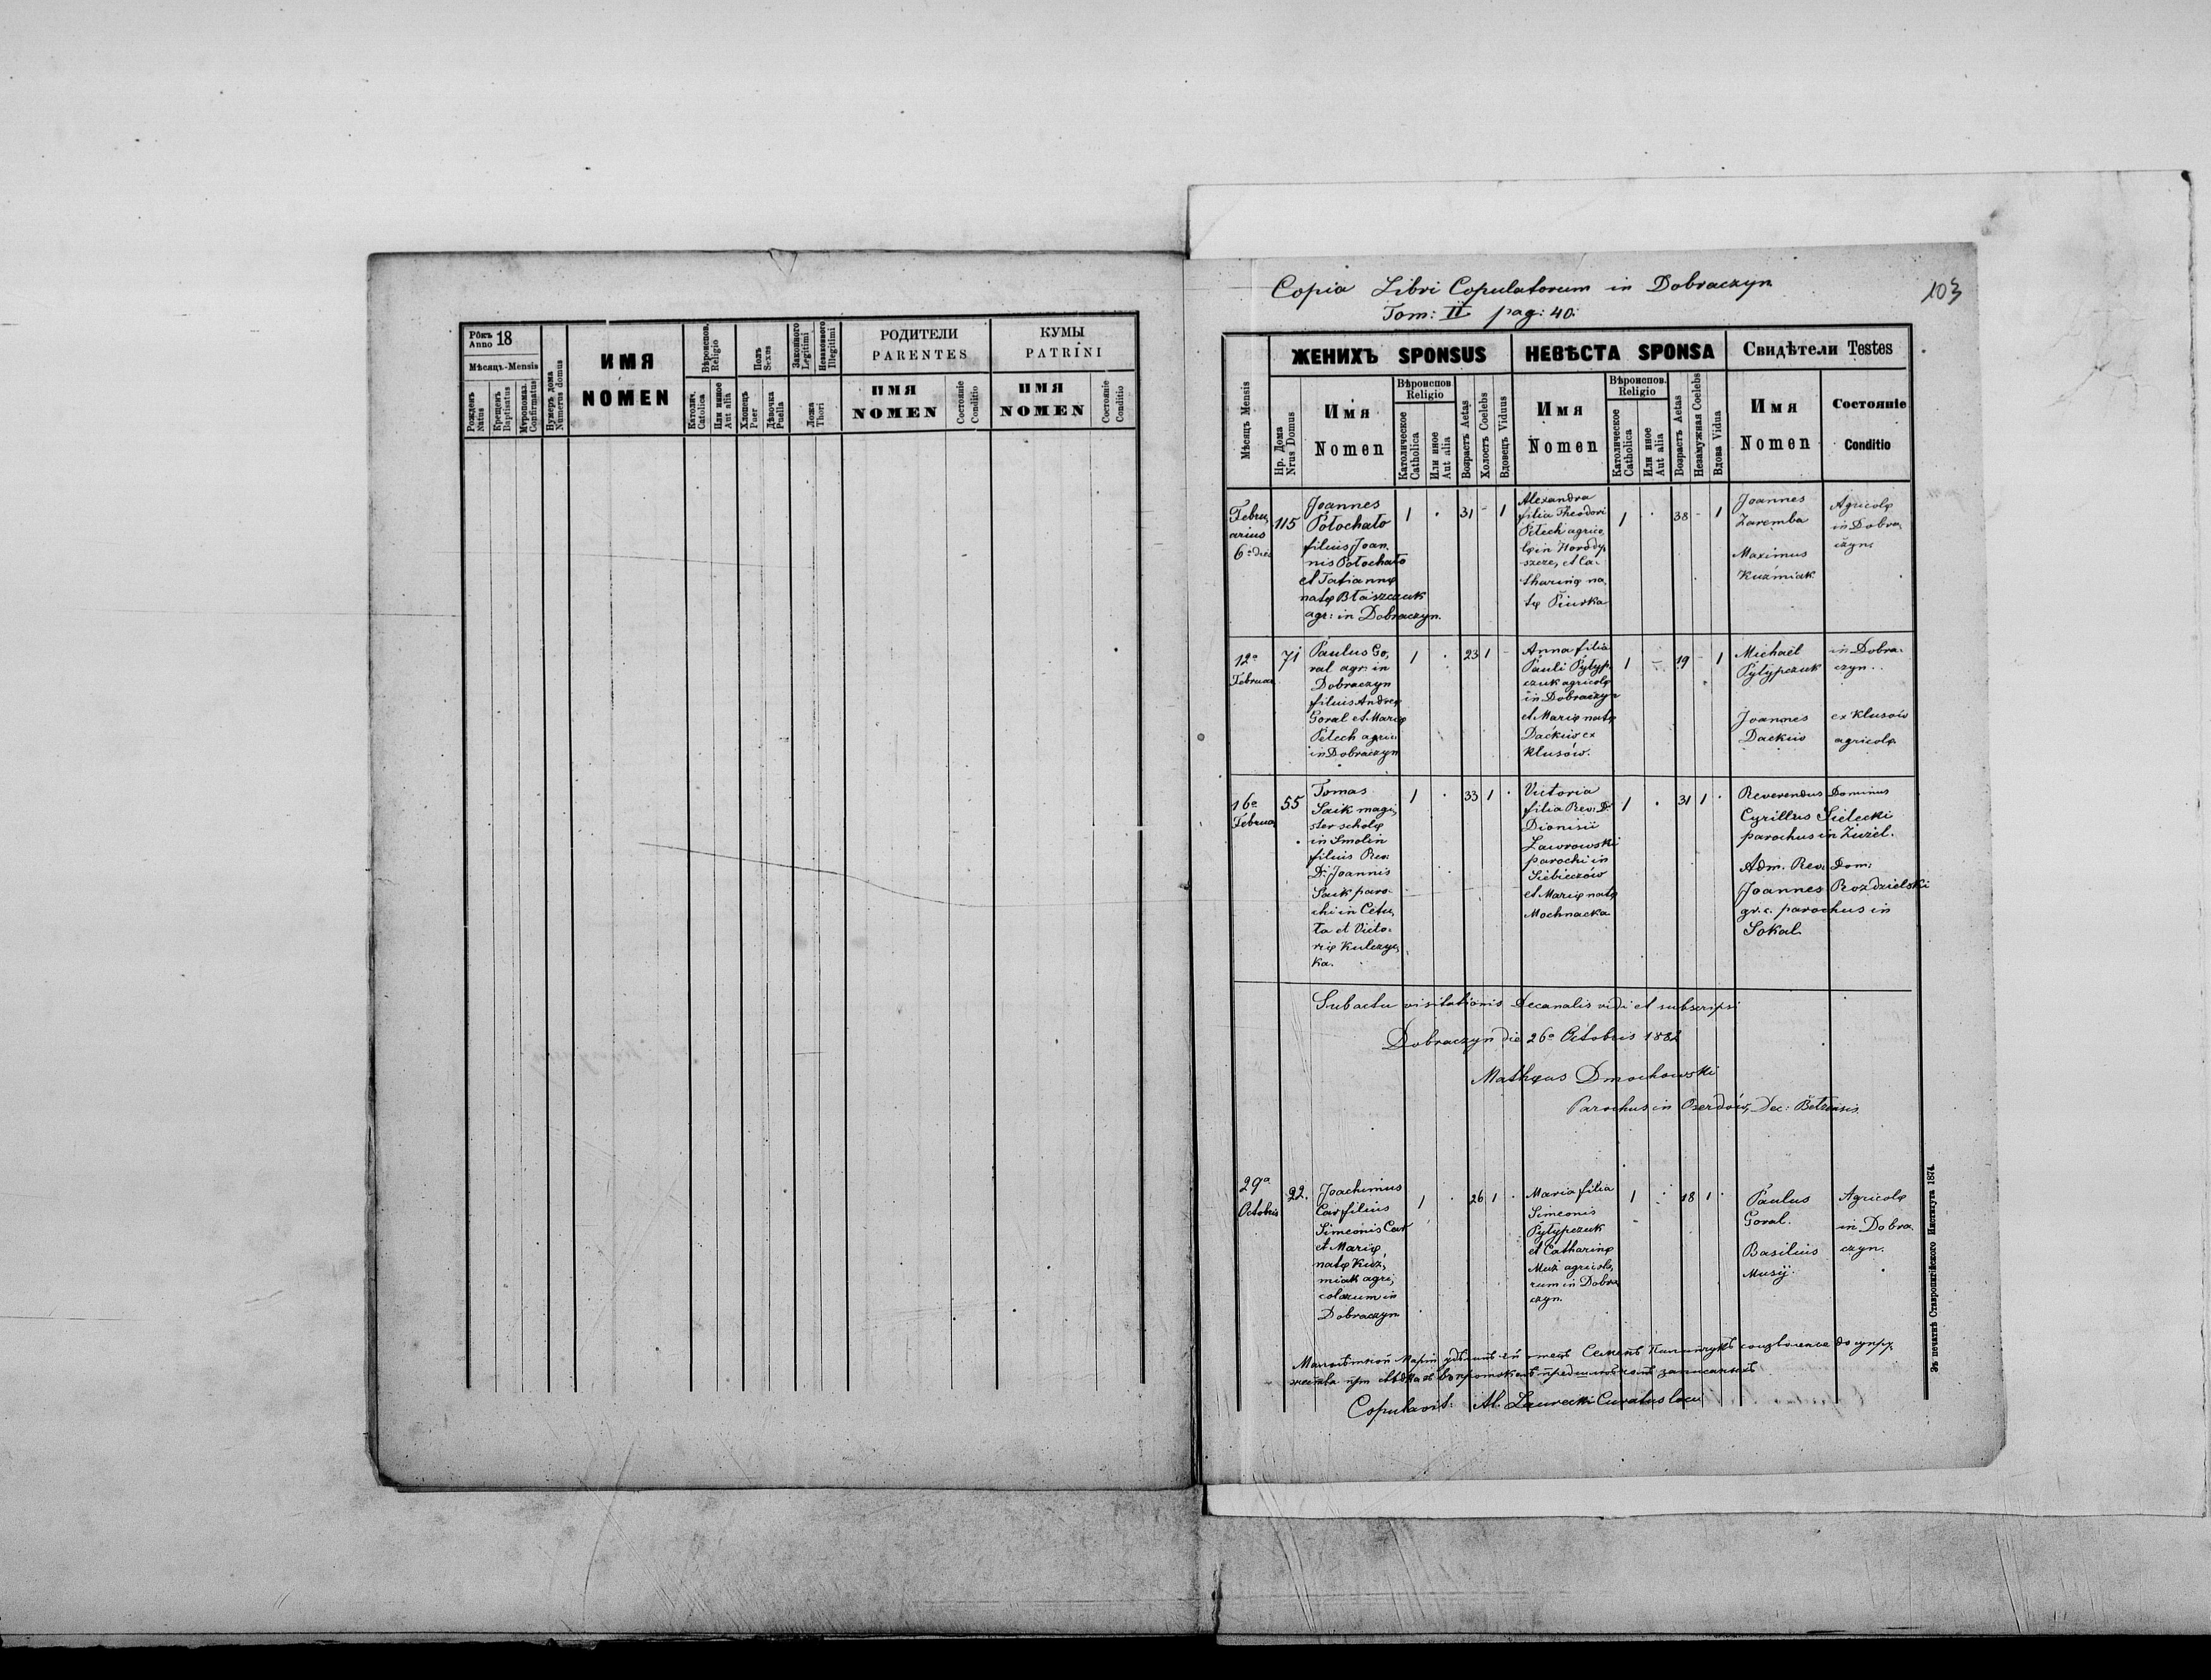 Рôкъ Anno 18
Мѣсяць-Mensis
Рожденъ Natus
Крещенъ Baptisatus
Мѵропомаз. Confirmatus
Нумеръ дома Numerus domus
ИМЯ
NOMEN
Вѣроиспов. Religio
Католич. Catolica
Или иное Aut alia
Полъ Sexus
Хлопець Puer
Дѣвочка Puella
Законного Legitimi
Незаконного Illegitimi
Ложа Thori
РОДИТЕЛИ
PARENTES
ИМЯ
NOMEN
Состояніе Conditio
КУМЫ
PATRINI
ИМЯ
NOMEN
Состояніе Conditio
Copia Libri Copulatorum in Dobraczyn
Tom: II pag: 40.
103
Мѣсяць Mensis
ЖЕНИХЪ SPONSUS
НЕВѢСТА SPONSA
Свидѣтели Testes
Нр. Дома Nrus Domus
Имя
Nomen
Вѣроиспов. Religio
Католическое Catholica
Или иное Aut alia
Возрастъ Aetas
Холостъ Coelebs
Вдовецъ Viduus
Имя
Nomen
Вѣроиспов. Religio
Католическое Catholica
Или иное Aut alia
Возрастъ Aetas
Незамужная Coelebs
Вдова Vidua
Имя
Nomen
Состояніе
Conditio
Febru,
arius
6a die
115
Joannes
Potochato
filius Joan,
nis Potochato
et Tatiannę
natę Błaszczuk
agr: in Dobraczyn.
1 . 31 - 1
Alexandra
filia Theodori
Pełech agrico
lę in Horody,
szcze, et Ca-
tharinę na,
tę Piurka
1 . 38 - 1
Joannes
Zaremba
Maximus
Kuźmiak
Agricolę
in Dobra,
czyn
12a
Februar
71
Paulus Go,
ral agr: in
Dobraczyn
filius Andreę
Goral et Marię
Pełech agric:
in Dobraczyn
1 . 23 1 -
Anna filia
Pauli Pyłyp,
czuk agricolę
in Dobraczyn
et Marię natę
Dackiw ex
Klusów.
1 - 19 - 1
Michaël
Pyłypczuk
Joannes
Dackiw
in Dobra-
czyn.
ex Klusów
agricolę
16a
Februar
55
Tomas
Saik magi,
ster scholę
in Smolin
filius Rev:
D: Joannis
Saik paro-
chi in Cetu,
la et Victo-
rię Kulczyc,
ka.
1 . 33 1 .
Victoria
filia Rev: D:
Dionisii
Ławrowski
parochi in
Siebieczów
et Marię natę
Mochnacka
1 . 31 1 .
Reverendus Dominus
Cyrillus Sielecki
parochus in Żużel.
Adm. Rev: Dom:
Joannes Rozdzielski
gr. c. parochus in
Sokal.
Sub actu visitationis Decanalis vidi et subscripsi
Dobraczyn die 26a Octobris 1882
Mathęus Dmochowski
Parochus in Oserdów, Dec: Bełzensis
29a
Octobris
22.
Joachimus
Car filius
Simeonis Car
et Marię,
natę Kuź,
miak agri,
colarum in
Dobraczyn
1 . 26 1 .
Maria filia
Simeonis
Pyłypczuk
et Catharinę
Muż agricola,
rum in Dobra
czyn.
1 . 18 1 .
Paulus
Goral.
Basilius
Musij.
Agricolę
in Dobra
czyn.
отецъ Семенъ Пилипчукъ до супру,
жества при
Copulavit: Al. Laurecki Curatus loci
Зъ печатнѣ Ставропигійского Института 1874.